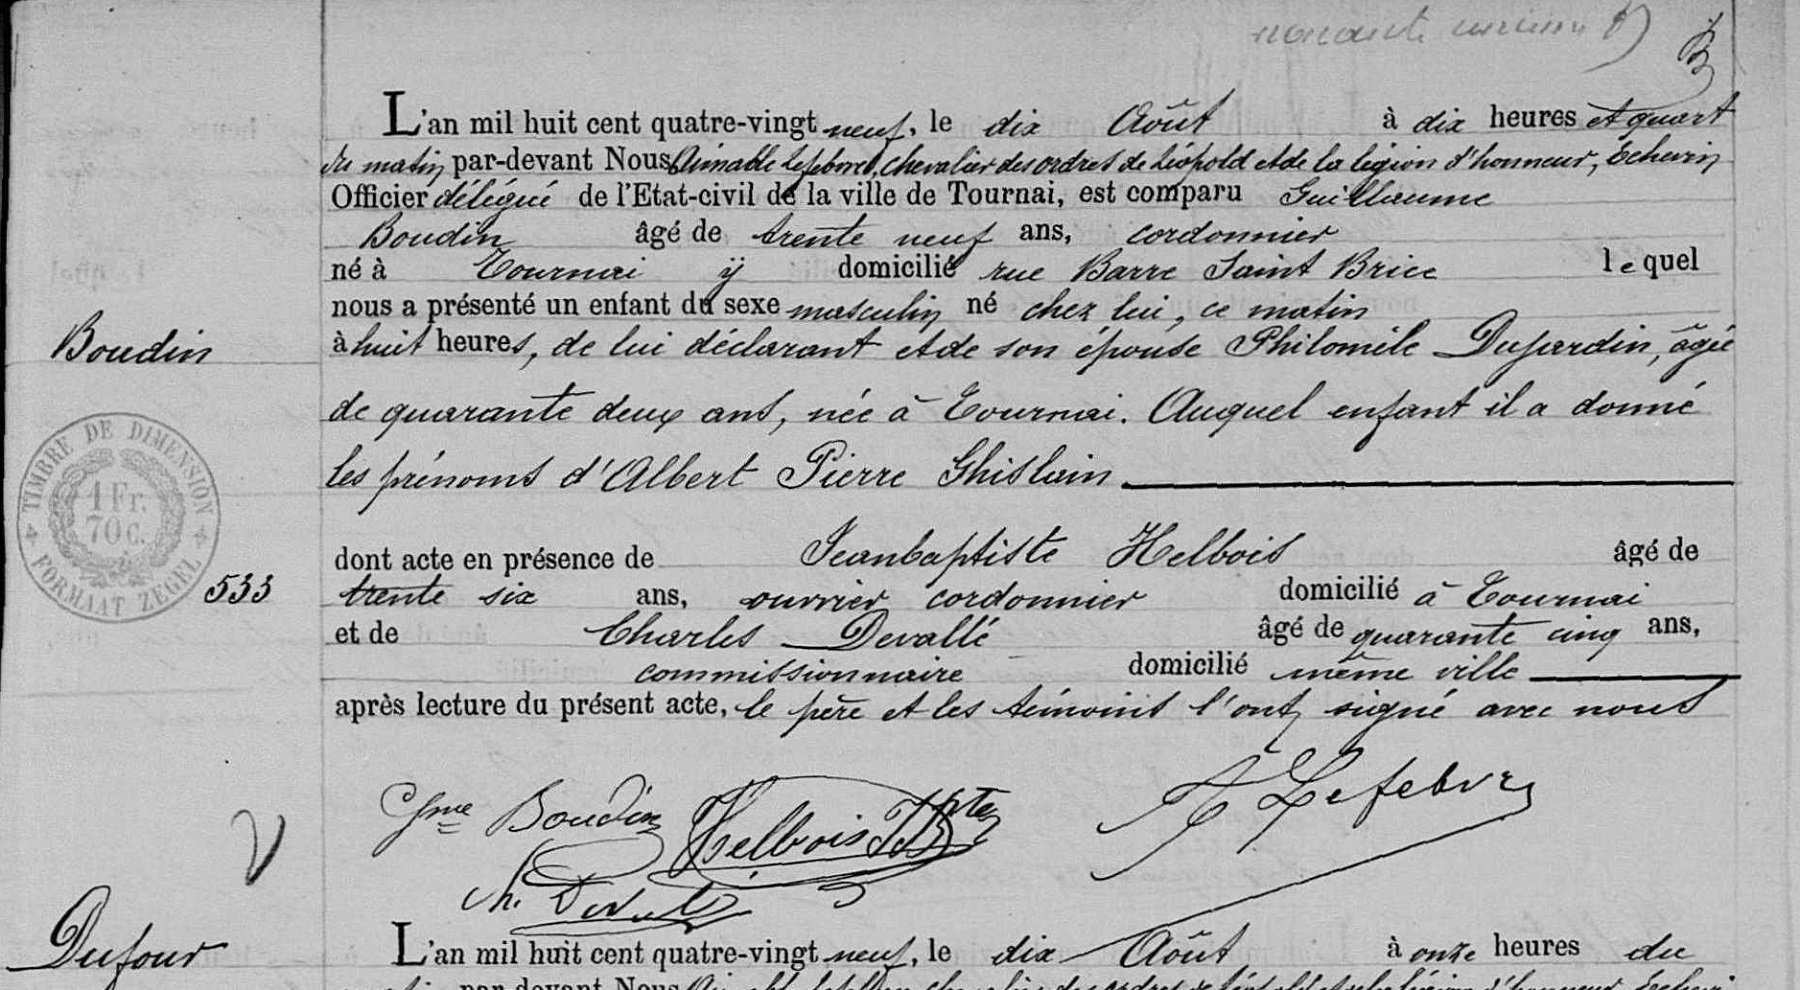 L'an mil huit cent quatre-vingt neuf, le dix Août à dix heures et quart
du matin par-devant Nous Aimable Lefebvre, chevalier des ordres de Léopold et de la légion d'honneur, Echevin
Officier délégué de l'Etat-civil de la ville de Tournai, est comparu Guillaume
Boudin âgé de trente neuf ans, cordonnier
né à Tournai y domicilié rue Barre Saint Brice lequel
nous a présenté un enfant du sexe masculin né chez lui, ce matin
Boudin
à huit heures, de lui déclarant et de son épouse Philomèle Dujardin, âgée
de quarante deux ans, née à Tournai. Auquel enfant il a donné
les prénoms d'Albert Pierre Ghislain
TIMBRE DE DIMENSION
1 Fr.
70 c.
FORMAAT ZEGEL
dont acte en présence de Jeanbaptiste Helbois âgé de
533
trente six ans, ouvrier cordonnier domicilié à Tournai
et de Charles Devallé âgé de quarante cinq ans,
commissionnaire domicilié même ville
après lecture du présent acte, le père et les témoins l'ont signé avec nous
Gme Boudin Helbois JBpte A Lefebvre
Ch. Devallé
Dufour
L'an mil huit cent quatre-vingt neuf, le dix Août à onze heures du
par-devant Nous